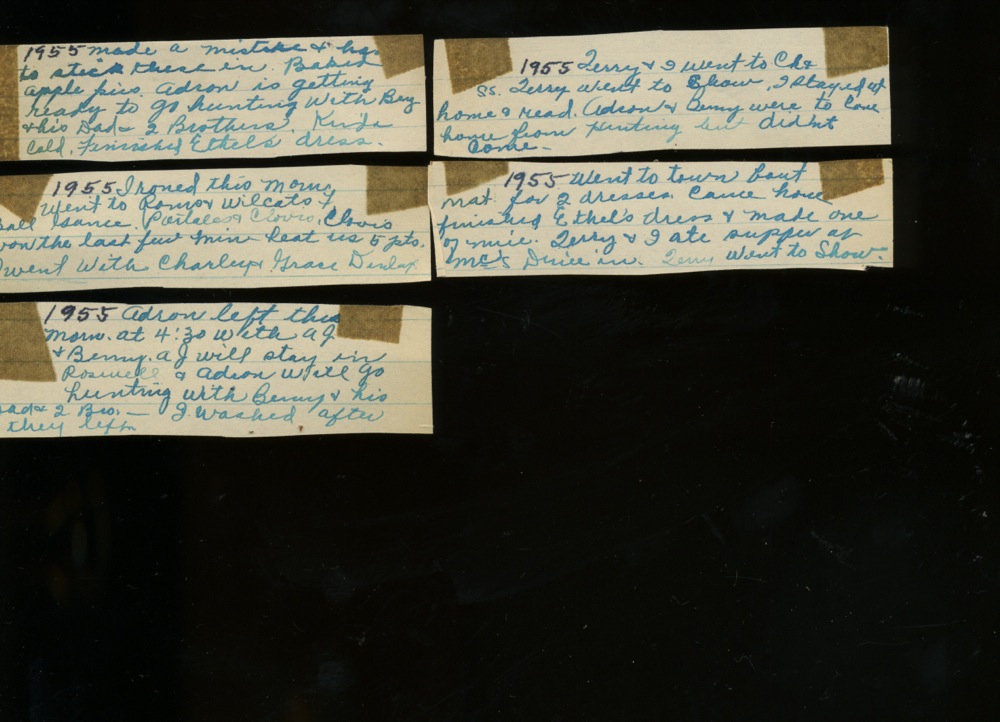 1955 made a mistake & had
to stick these in. Baked
apple pies. Adron is getting
ready to go hunting With Beny
& his Dad & 2 Brothers. Kinda
Cold. Finished Ethel's dress.
1955 Ironed this Morn,
Went to Roms & Wilcats f
ball Game. Portales & Clovis, Clovis
won the last few min beat us 5 pts.
I went With Charley & Grace Dunlap
1955 Adron left this
Morn. at 4:30 With A J.
& Benny. A J will stay in
Roswell & Adron Will go
hunting with Benny & his
Dad & 2 Bro. — I Washed after
they left
1955 Terry & I went to Ch &
SS. Terry went to Show, I stayed at
home & read. Adron & Benny were to Come
home from Hunting but didn't
Come —
1955 Went to town bout
mat. for 2 dresses. Came home
finished Ethel's dress & made one
of mine. Terry & I ate supper at
Mc's Drive in. Terry Went to Show.